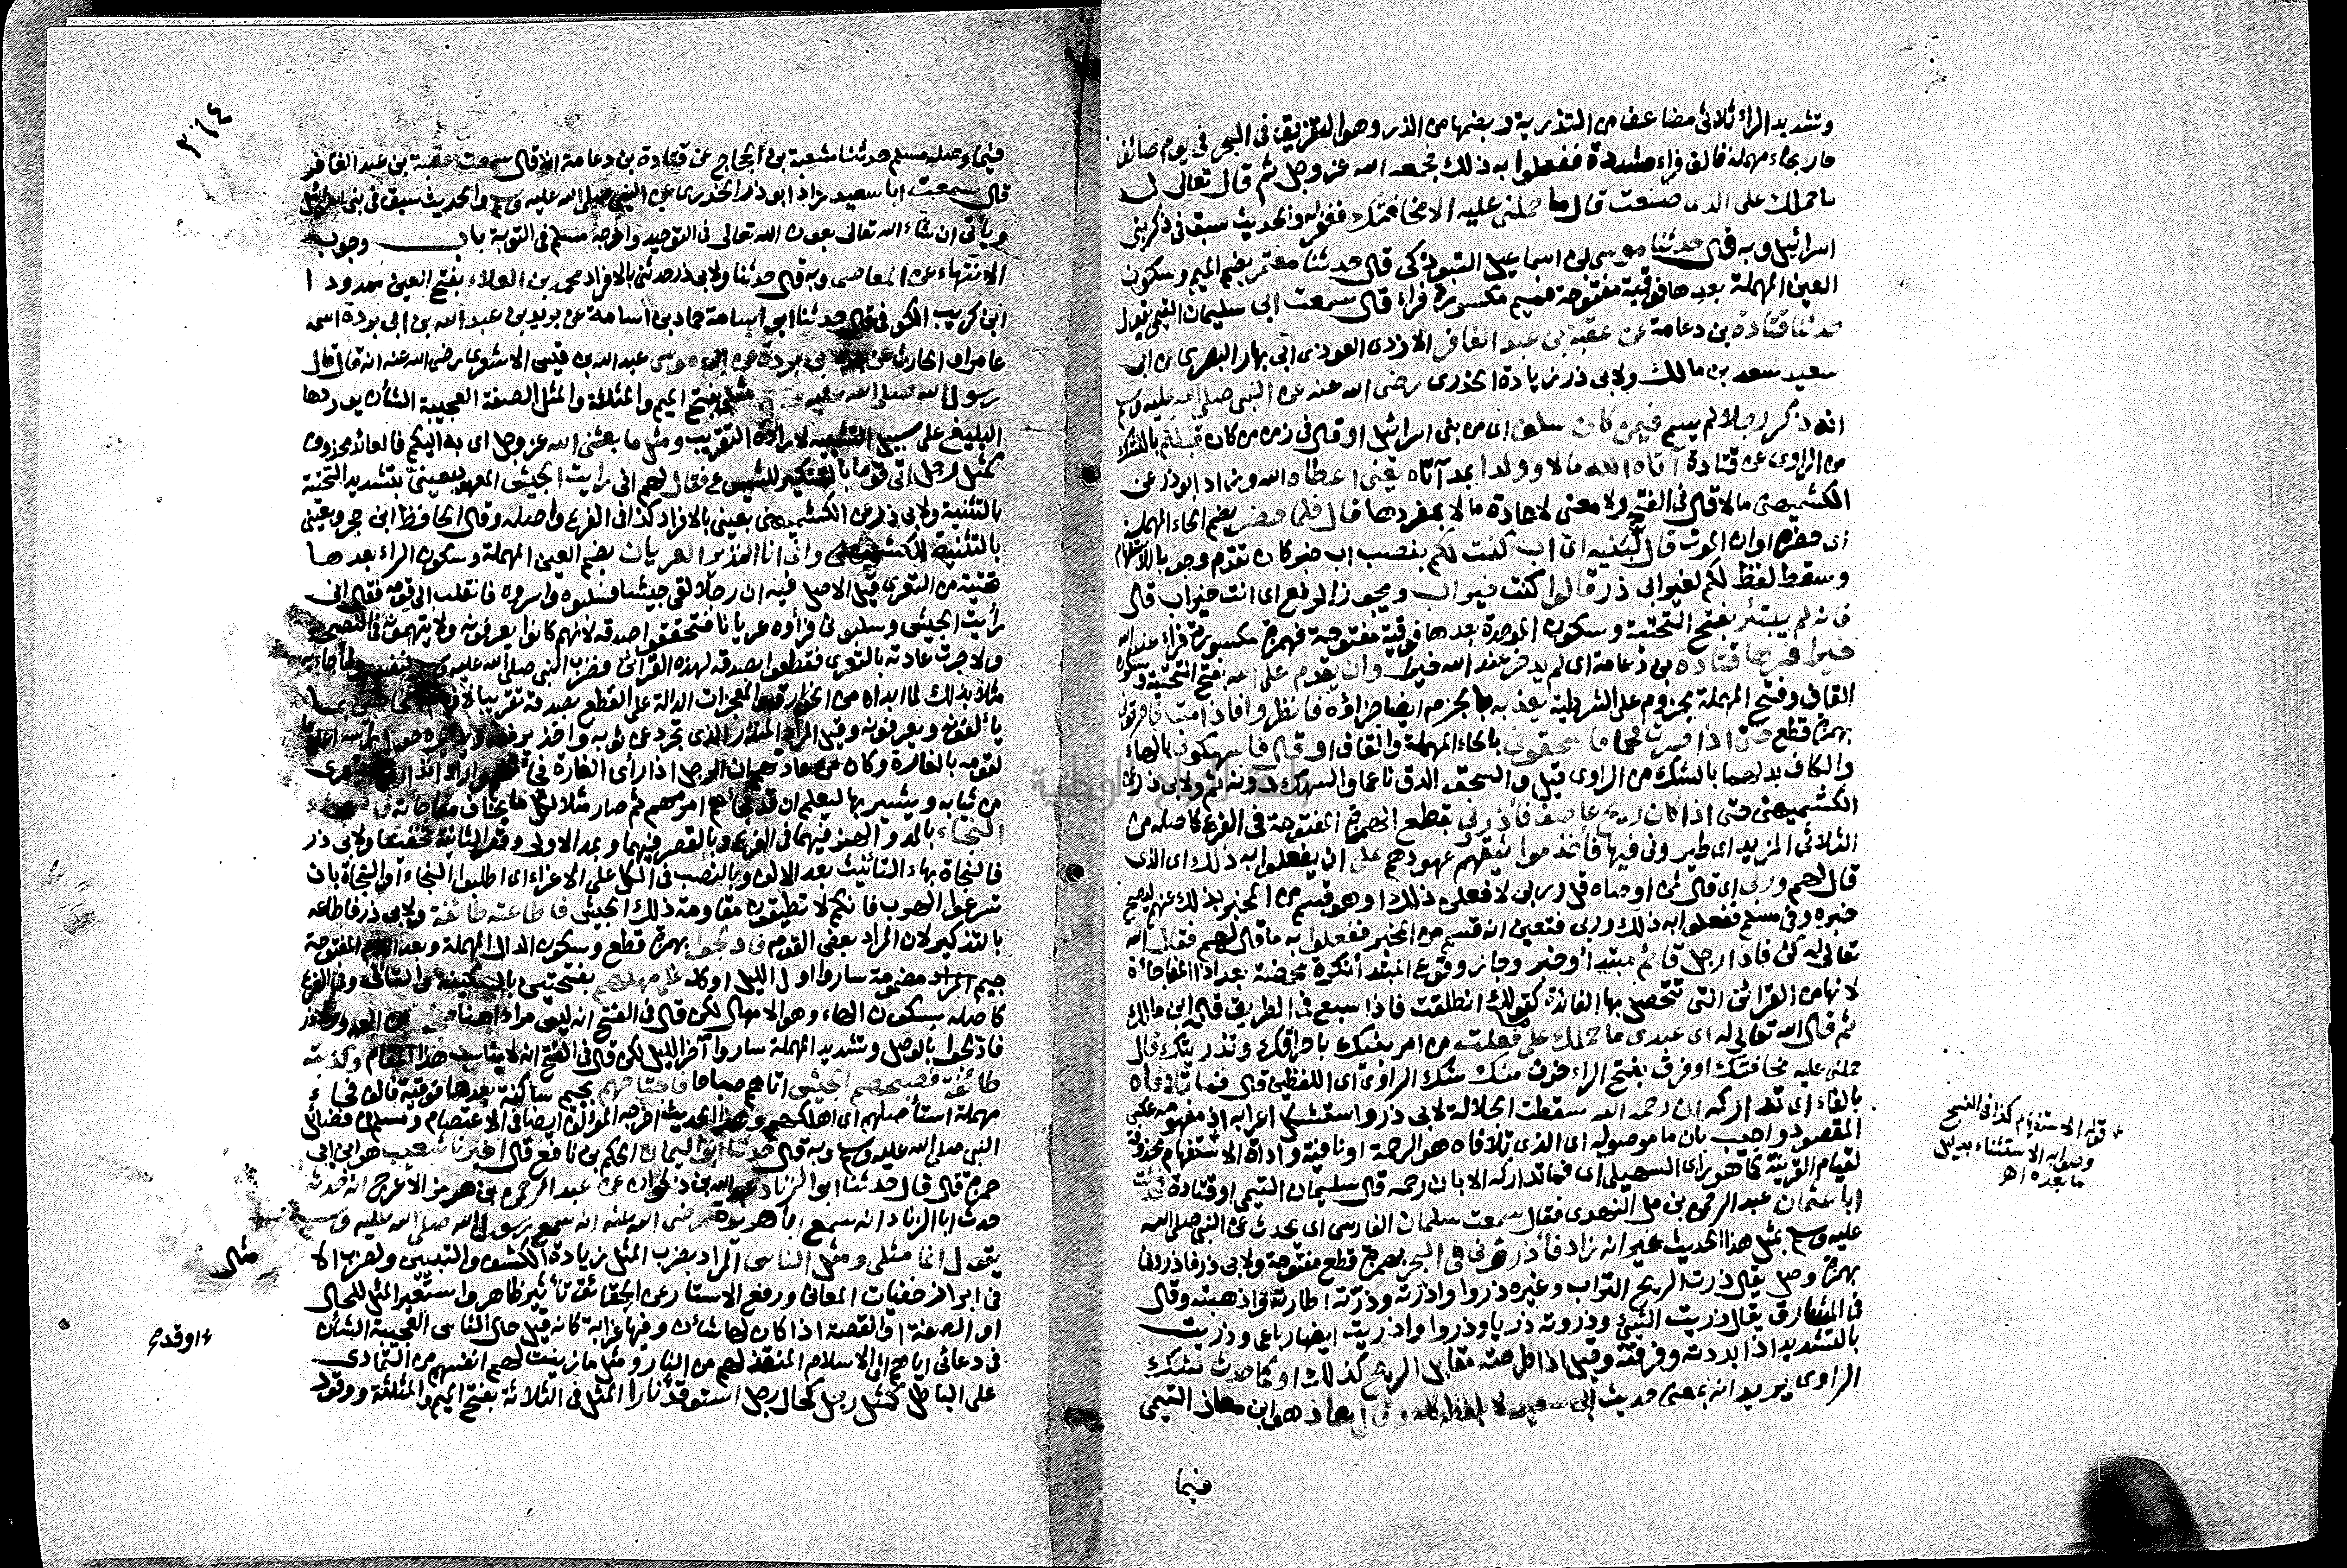 وتشديد الراء ثلاثي مضاعف من التذرية وبضمها من الذر وهو التفريق في البحر في يوم صائف
حار بحاء مهملة فالف فراء مشددة ففعلوا به ذلك فجمعه الله عز وجل ثم قال تعالى له
ما حملك على الذي صنعت قال ما حملني عليه الا مخافتك فغفر له والحديث سبق في ذكر بني
اسرائيل وبه قال حدثنا موسى بن اسماعيل التبوذكي قال حدثنا معتمر بضم الميم وسكون
العين المهملة بعدها فوقية مفتوحة فميم مكسورة فراء قال سمعت ابي سليمان التيمي يقول
حدثنا قتادة بن دعامة عن عقبة بن عبد الغافر الازدي العوذي ابي نهار البصري عن ابي
سعيد سعد بن مالك ولابي ذر زيادة الخدري رضي الله عنه عن النبي صلى الله عليه وسلم
انه ذكر رجلا لم يسم فيمن كان سلف اي من بني اسرائيل او قال في زمن من كان قبلكم بالشك
من الراوي عن قتادة آتاه الله مالا وولدا بمد آتاه يعني اعطاه الله وزاد ابو ذر عن
الكشميهني مالا قال في الفتح ولا معنى لاعادة مالا بمفردها قال فلما حضر بضم الحاء المهملة
اي حضره اوان الموت قال لبنيه اي اب كنت لكم بنصب اب خبر كان تقدم وجوبا للاستفهام
وسقط لفظ لكم لغير ابي ذر قالوا كنت خير اب ويجوز الرفع اي انت خير اب قال
فانه لم يبتئر بفتح التحتية وسكون الموحدة بعدها فوقية مفتوحة فهمزة مكسورة فراء عند الله
خيرا فسرها قتادة بن دعامة اي لم يدخر عند الله خيرا وان يقدم على الله بفتح التحتية وسكون
القاف وفتح المهملة مجزوم على الشرطية يعذبه بالجزم ايضا جزاؤه فانظروا فاذا مت فاحرقوني
بهمزة قطع حتى اذا صرت فحما فاسحقوني بالحاء المهملة والقاف او قال فاسهكوني بالهاء
والكاف بدلهما بالشك من الراوي قيل والسحق الدق ناعما والسهك دونه ثم ولابي ذر عن
الكشميهني حتى اذا كان ريح عاصف فأذروني بقطع الهمزة المفتوحة في الفرع كاصله من
الثلاثي المزيد اي طيروني فيها فأخذ مواثيقهم عهودهم على ان يفعلوا به ذلك اي الذي
قال لهم وربي اي قال لمن اوصاه قل وربي لافعلن ذلك او هو قسم من المخبر بذلك عنهم ليصح
خبره وفي مسلم ففعلوا به ذلك وربي فتعين انه قسم من المخبر ففعلوا به ما قال لهم فقال الله
تعالى له كن فاذا رجل قائم مبتدأ وخبر وجاز وقوع المبتدأ نكرة محضة بعد اذا المفاجأة
لانها من القرائن التي تتحصل بها الفائدة كقولك انطلقت فاذا سبع في الطريق قاله ابن مالك
ثم قال الله تعالى له اي عبدي ما حملك على فعلت من امر بنيك باحراقك وتذريتك قال
حملني عليه مخافتك او فرق بفتح الراء خوف منك شك الراوي اي اللفظين قال فما تلافاه
بالفاء اي تداركه ان رحمه الله سقطت الجلالة لابي ذر واستشكل اعرابه اذ مفهومه عكس
المقصود واجيب بان ما موصولة اي الذي تلافاه هو الرحمة او نافية واداة الاستفهام محذوفة
لقيام القرينة كما هو رأى السهيلي اي فما تداركه الا بان رحمه قال سليمان التيمي او قتادة فحدثت
ابا عثمان عبد الرحمن بن مل النهدي فقال سمعت سلمان الفارسي اي يحدث عن النبي صلى الله
عليه وسلم بمثل هذا الحديث غير انه زاد فأذروني في البحر بهمزة قطع مفتوحة ولابي ذر فاذروني
بهمزة وصل يقال ذرت الريح التراب وغيره ذروا واذرته وذرته اطارته واذهبته وقال
في المشارق يقال ذريت الشيء وذروته ذريا وذروا واذريت ايضا رباعي وذريت
بالتشديد اذا بددته وفرقته وقيل اذا طرحته مقابل الريح كذلك او كما حدث شك
الراوي يريد انه بمعنى حديث ابي سعيد لا بلفظه كله وقال معاذ هو ابن معاذ التيمي
فيما
قوله الاستفهام كذا في النسخ
وصوابه الاستثناء بدليل
ما بعده اهـ
٣١٤
فيما وصله مسلم حدثنا شعبة بن الحجاج عن قتادة بن دعامة انه قال سمعت عقبة بن عبد الغافر
قال سمعت ابا سعيد زاد ابو ذر الخدري عن النبي صلى الله عليه وسلم والحديث سبق في بني اسرائيل
ويأتي ان شاء الله تعالى بعون الله تعالى في التوحيد واخرجه مسلم في التوبة باب وجوب
الانتهاء عن المعاصي وبه قال حدثنا ولابي ذر حدثني بالافراد محمد بن العلاء بفتح العين ممدودا
ابن كريب الكوفي قال حدثنا ابو اسامة حماد بن اسامة عن بريد بن عبد الله بن ابي بردة اسمه
عامر او الحارث عن ابي بردة عن ابي موسى عبد الله بن قيس الاشعري رضي الله عنه انه قال قال
رسول الله صلى الله عليه مثلي بفتح الميم والمثلثة والمثل الصفة العجيبة الشأن يوردها
البليغ على سبيل التشبيه لارادة التقريب ومثل ما بعثني الله عز وجل اي به اليكم فالعائد محذوف
كمثل رجل اتى قوما بالتنكير للشيوع فقال لهم اني رايت الجيش المعهود بعيني بتشديد التحتية
بالتثنية ولابي ذر عن الكشميهني بعيني بالافراد كذا في الفرع واصله وقال الحافظ ابن حجر وبعيني
بالتثنية للكشميهني واني انا النذير العريان بضم العين المهملة وسكون الراء بعدها
تحتية من التعري قيل الاصل فيه ان رجلا لقي جيشا فسلبوه واسروه فانفلت الى قومه فقال اني
رأيت الجيش وسلبوني فرأوه عريانا فتحققوا صدقه لانهم كانوا يعرفونه ولا يتهمونه في النصيحة
ولا جرت عادته بالتعري فقطعوا بصدقه لهذه القرائن فضرب النبي صلى الله عليه وسلم لنفسه ولما جاء به
مثلا بذلك لما ابداه من الخوارق والمعجزات الدالة على القطع بصدقه تقريبا لافهام المخاطبين بما
يألفونه ويعرفونه وقيل المراد المنذر الذي تجرد عن ثوبه واخذ يرفعه ويديره حول رأسه اعلاما
لقومه بالغارة وكان من عادتهم ان الرجل اذا رأى الغارة فجأتهم واراد انذار قومه تعرى
من ثيابه ويشير بها ليعلم ان قد فجأهم امر مهم ثم صار مثلا لكل ما يخاف مفاجأته
النجاء بالمد والهمز فيهما في الفرع وبالقصر فيهما وبمد الاولى وقصر الثانية تخفيفا ولابي ذر
فالنجاة بهاء التأنيث بعد الالف وبالنصب في الكل على الاغراء اي اطلبوا النجاء او النجاة بان
تسرعوا الهرب فانكم لا تطيقون مقاومة ذلك الجيش فاطاعته طائفة ولابي ذر فاطاعه
بالتذكير لان المراد بعض القوم فادلجوا بهمزة قطع وسكون الدال المهملة وبعد اللام المفتوحة
جيم مضمومة ساروا اول الليل او كله على مهلهم بفتحتين بالسكينة والتأني وفي الفرع
كاصله بسكون الهاء وهو الامهال لكن قال في الفتح انه ليس مرادا هنا فنجوا من العدو ولابي ذر
فادلجوا بالوصل وتشديد المهملة ساروا آخر الليل لكن قال في الفتح انه لا يناسب هذا المقام وكذبته
طائفة فصبحهم الجيش اتاهم صباحا فاجتاحهم بجيم ساكنة بعدها فوقية فالف فحاء
مهملة استأصلهم اي اهلكهم وهذا الحديث اخرجه المؤلف ايضا في الاعتصام ومسلم في فضائل
النبي صلى الله عليه وسلم وبه قال حدثنا ابو اليمان الحكم بن نافع قال اخبرنا شعيب هو ابن ابي
حمزة قال حدثنا ابو الزناد عبد الله بن ذكوان عن عبد الرحمن بن هرمز الاعرج انه حدثه
حدث ابا الزناد انه سمع ابا هريرة رضي الله عنه انه سمع رسول الله صلى الله عليه وسلم
يقول انما مثلي ومثل الناس المراد بضرب المثل زيادة الكشف والتبيين ولضرب الا
مثال
في ابراز خفيات المعاني ورفع الاستار عن الحقائق تأثير ظاهر واستعير المثل للحال
او الصفة او القصة اذا كان لها شأن وفيها غرابة كانه قيل حال الناس العجيبة الشأن
في دعائي اياهم الى الاسلام المنقذ لهم من النار ومثل ما زينت لهم انفسهم من التمادي
على الباطل كمثل رجل كحال رجل استوقد نارا المثل في الثلاثة بفتح الميم والمثلثة ووقود
اوقد